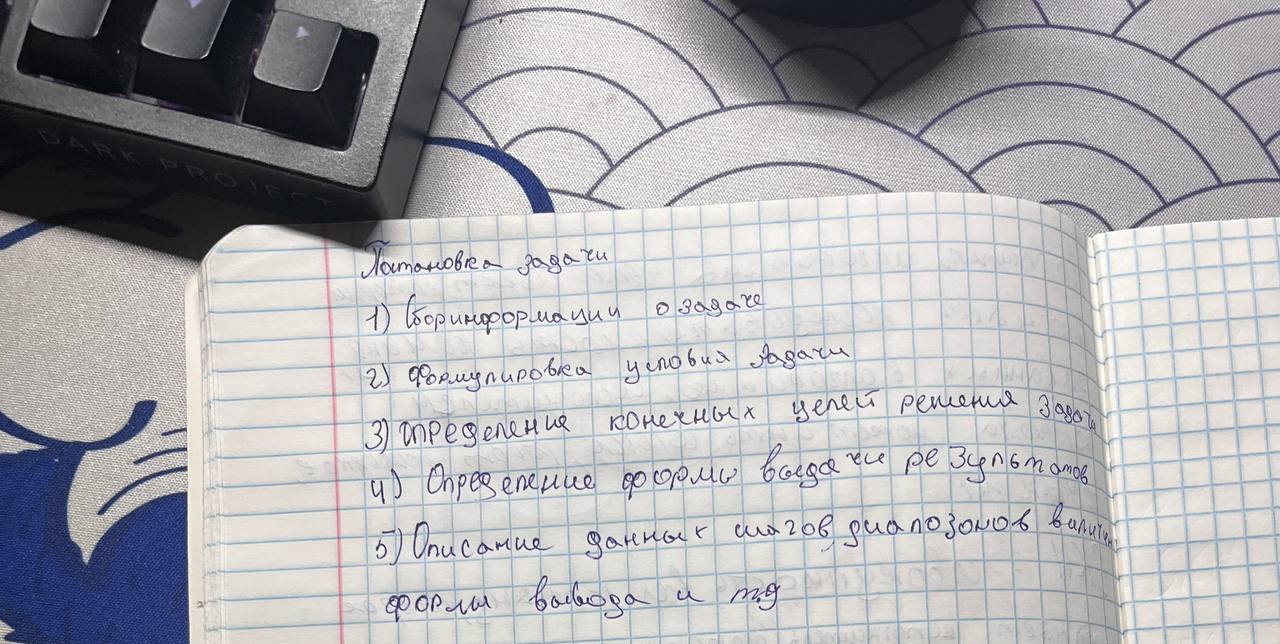 DARK PROJECT
Постановка задачи
1) Сбор информации о задаче
2) Формулировка условия задачи
3) Определение конечных целей решения задачи
4) Определение формы выдачи результатов
5) Описание данных шагов, диапозонов величин
формы вывода и тд